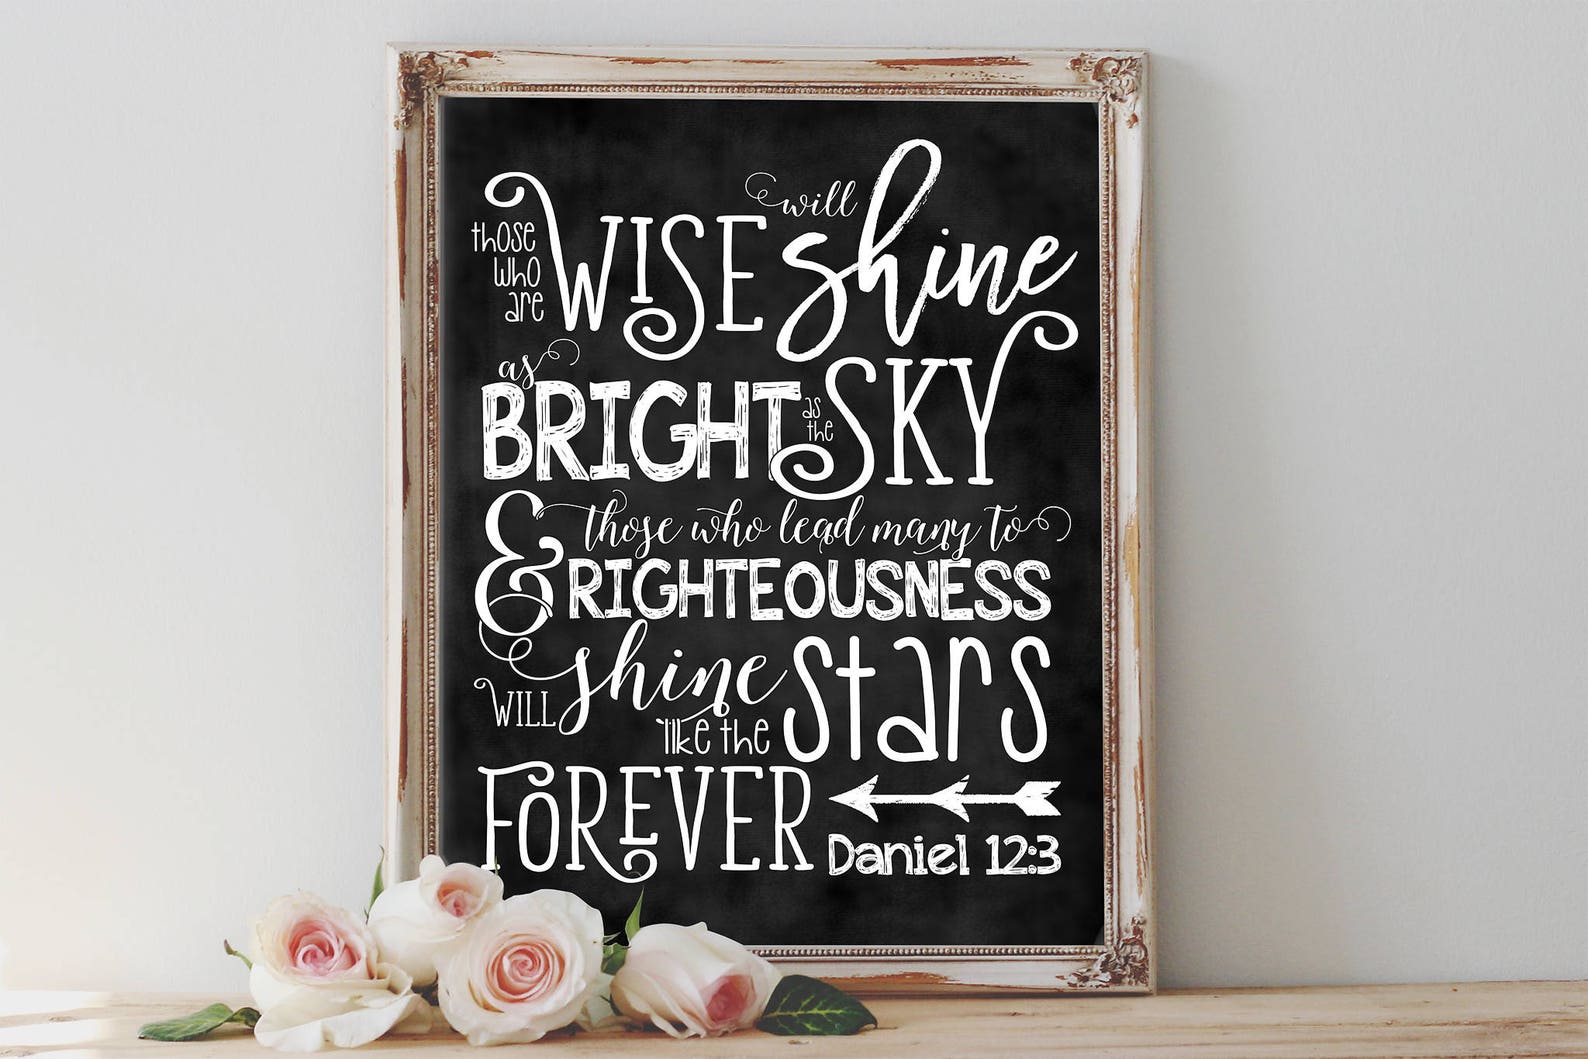 those who are WISE will shine
as BRIGHT as the SKY
& those who lead many to
RIGHTEOUSNESS
WILL shine like the stars
FOREVER
Daniel 12:3